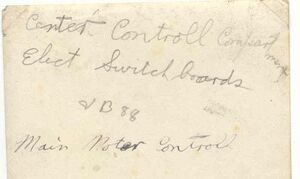 Center Controll Compartment
Elect Switchboards
UB 88
Main Motor Control